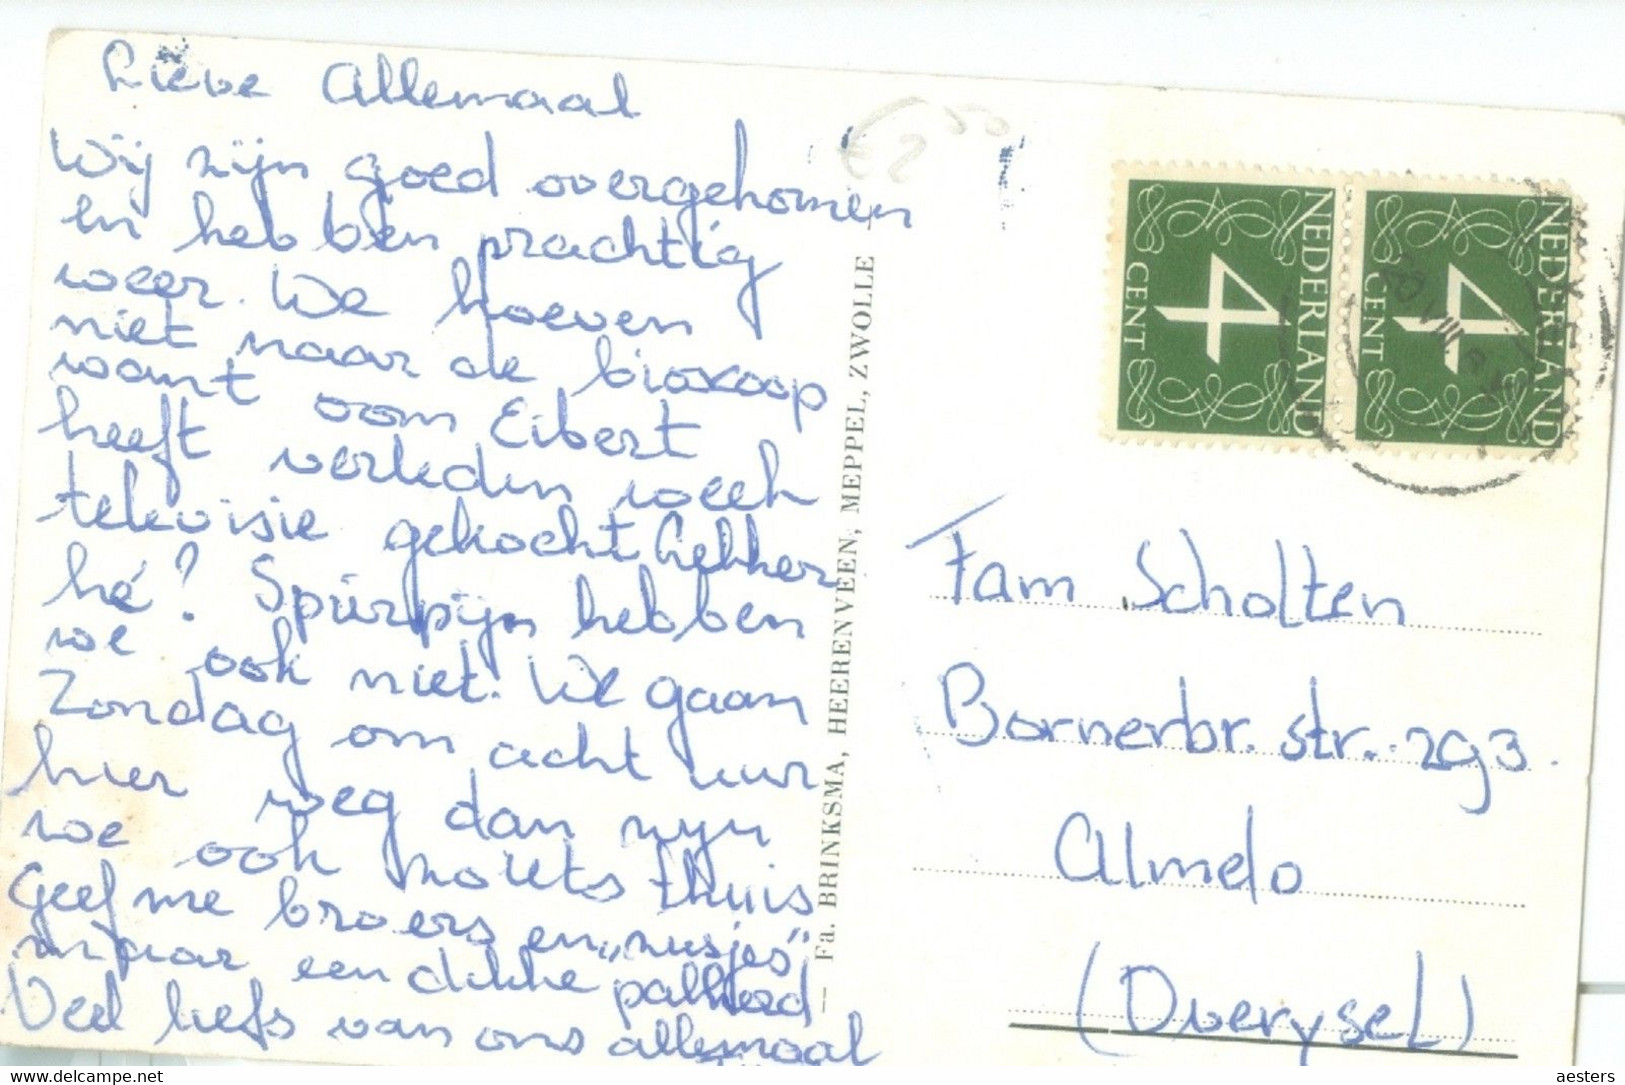 Lieve Allemaal
Wij zijn goed overgekomen
en hebben prachtig
weer. We hoeven
niet naar de bioskoop
want oom Eibert
heeft verleden week
televisie gekocht Lekker
hé? Spierpijn hebben
we ook niet. We gaan
Zondag om acht uur
hier weg dan zijn
we ook thuis
Geef me broers en „zusjes"
maar een dikke pakkerd
Veel liefs van ons allemaal
Fa. BRINKSMA, HEERENVEEN, MEPPEL, ZWOLLE
NEDERLAND
4
CENT
NEDERLAND
4
CENT
Fam Scholten
Bornerbr. str. 293.
Almelo
(Overysel)
aesters